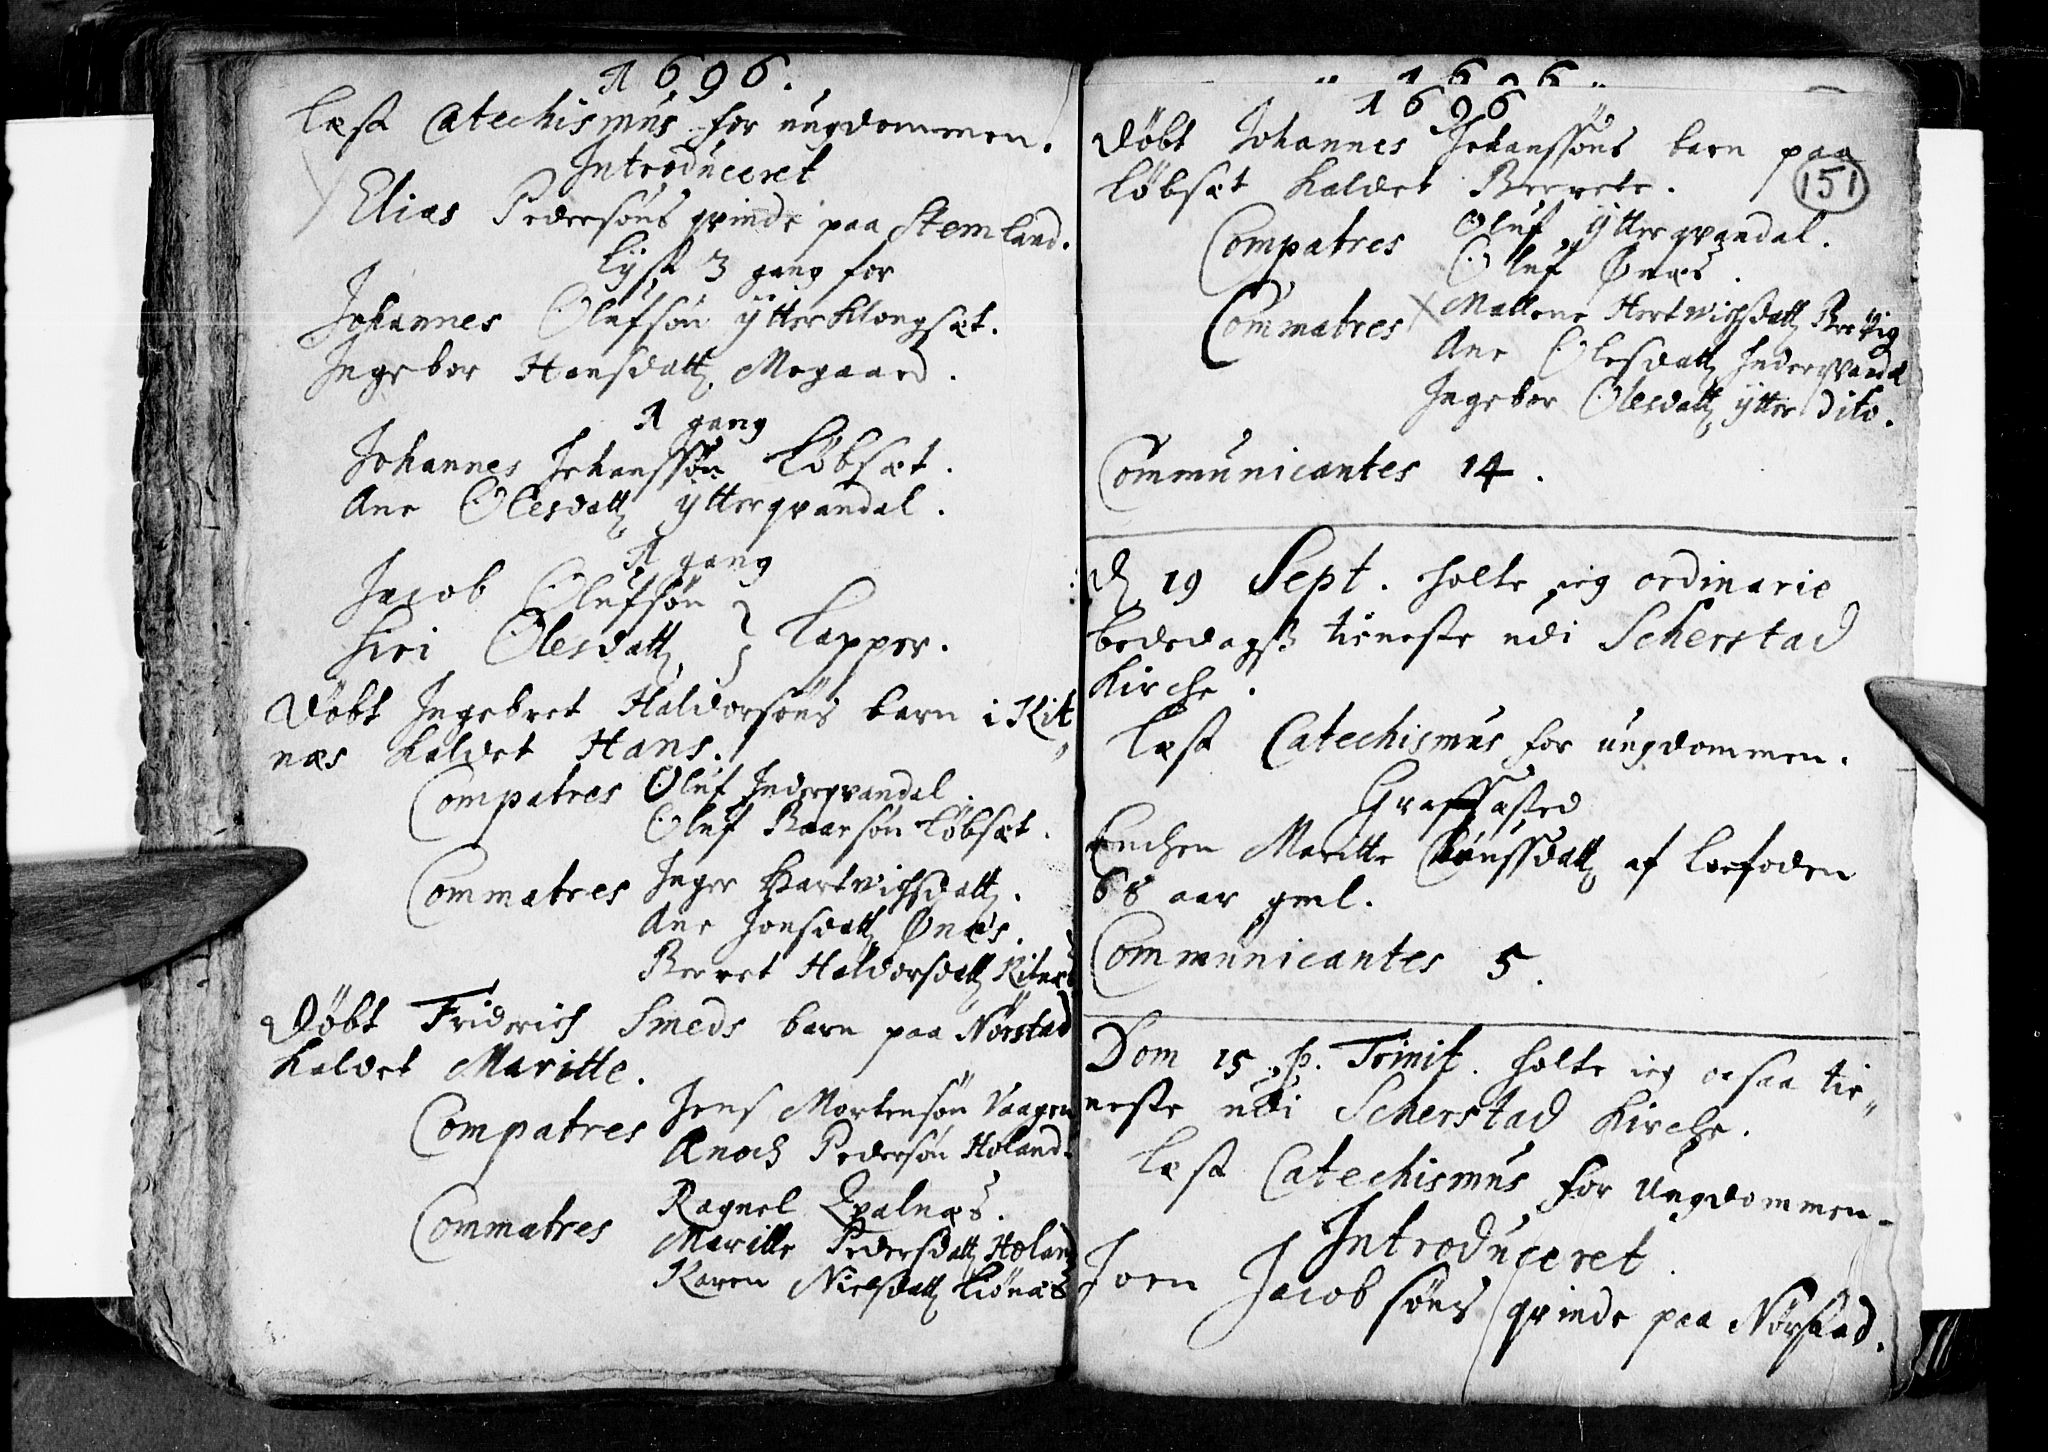 1696.
Læst Catechismus for ungdommen.
Introduceret
Elias Pedersøns qvinde paa Stemland.
Lyst 3 gang for
Johannes Olufsøn ÿtter Klongsæt.
Ingebor Hansdatt. Mogaard.
1 gang
Johannes Johanssøn Løbsæt.
Ane Olesdatt. ÿtterqvandal.
1 gang
Jacob Olufsøn
Siri Olesdatt. } Lapper.
Døbt Ingebret Haldorsøns barn i Kit
næs kaldet Hans.
Compatres Oluf Inderqvandal.
Oluf Baarsøn Løbsæt.
Commatres Inger Hartwichsdatt.
Ane Jonsdatt. Ønæs.
Berret Haldorsdatt. Kitnæs
Døbt Friderich Smeds barn paa Nørstad
kaldet Maritte.
Compatres Jens Mortensøn Vaagen
Ænoch Pedersøn Høland.
Commatres Ragnel Qvalnæs.
Maritte Pedersdatt. Høland
Karen Nielsdatt. Liønæs
1696
1696
Døbt Johannes Johanssøns barn paa
Løbsæt kaldet Berrete.
151
Compatres Oluf ÿtterqvandal.
Oluf Ønæs.
Commatres Mallene Hertwichsdatt. Brevig
Ane Olesdatt. Inderqvandal
Ingebor Olesdatt. ÿtter dito.
Communicantes 14.
D. 19 Sept. holte ieg ordinarie
bededagss tieneste udi Scherstad
Kirche.
Læst Catechismus for ungdommen.
Graffæsted
Enchen Maritte af Loefoden
68 aar gml.
Communicantes 5.
Dom 15 p. Trinit. holte ieg ocsaa tie„
neste udi Scherstad Kirche.
Læst Catechismus for Ungdommen.
Introduceret
Joen Jacobsøns qvinde paa Nørstad.